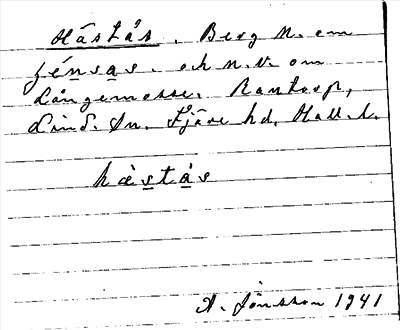 Håstås. Berg N. om
jénsas. och n.v. om
Långemosse. Rankorp,
Lind. sn. Fjäre hd. Hall. l.
hæstås
A. Jönsson 1941